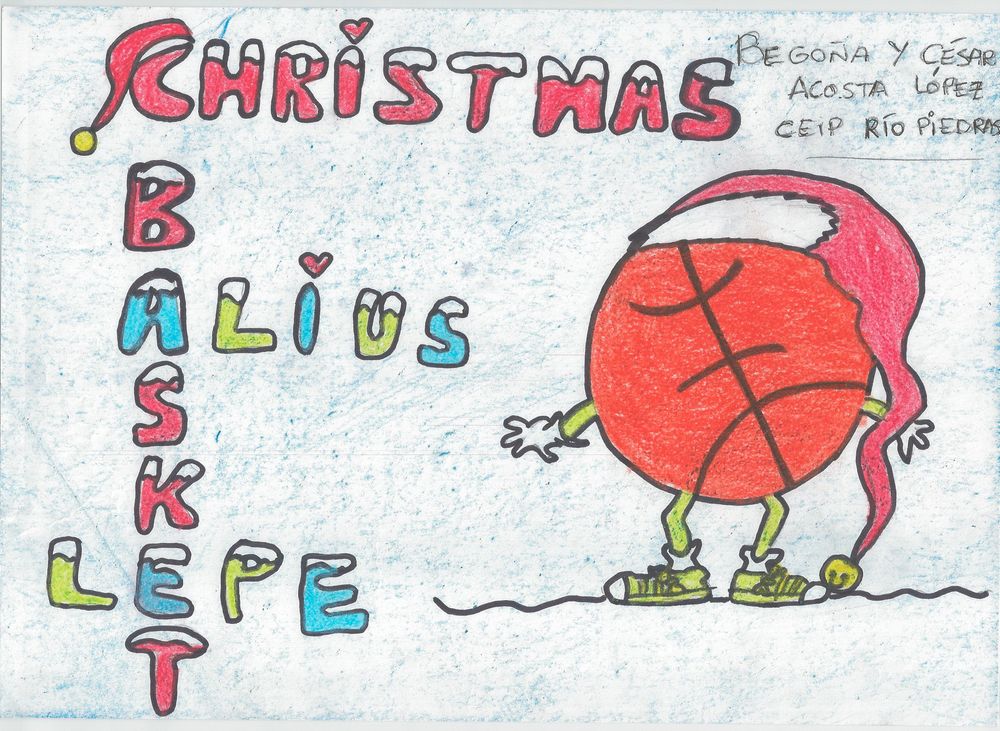 CHRISTMAS
BEGOÑA Y CÉSAR
ACOSTA LÓPEZ
CEIP RÍO PIEDRAS
BASKET
ALIUS
LEPE